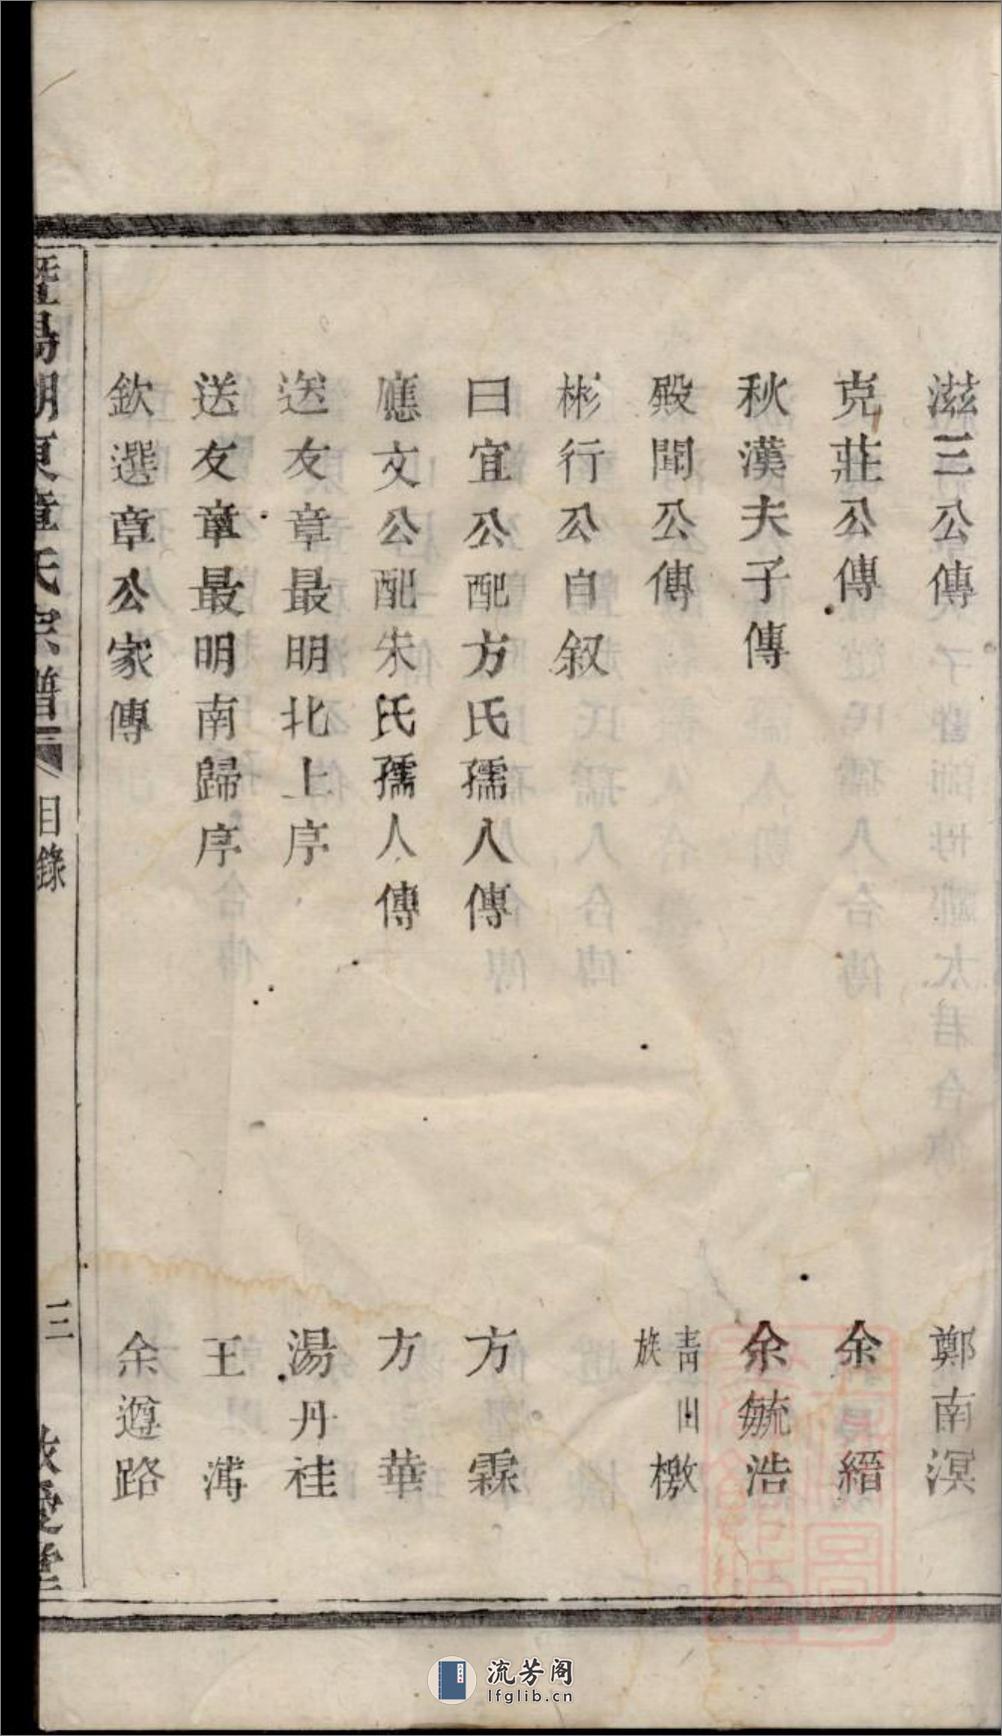 滋三公傳 鄭南溟
克莊公傳 余縉
秋漢夫子傳 余毓浩
殿聞公傳 青山族檄
彬行公自叙
曰宜公配方氏孺人傳 方霖
應文公配朱氏孺人傳 方華
送友章最明北上序 湯丹桂
送友章最明南歸序 王溥
欽選章公家傳 余遵路
暨陽湖東章氏宗譜 目錄 三 敬愛堂
流芳阁
lfglib.cn